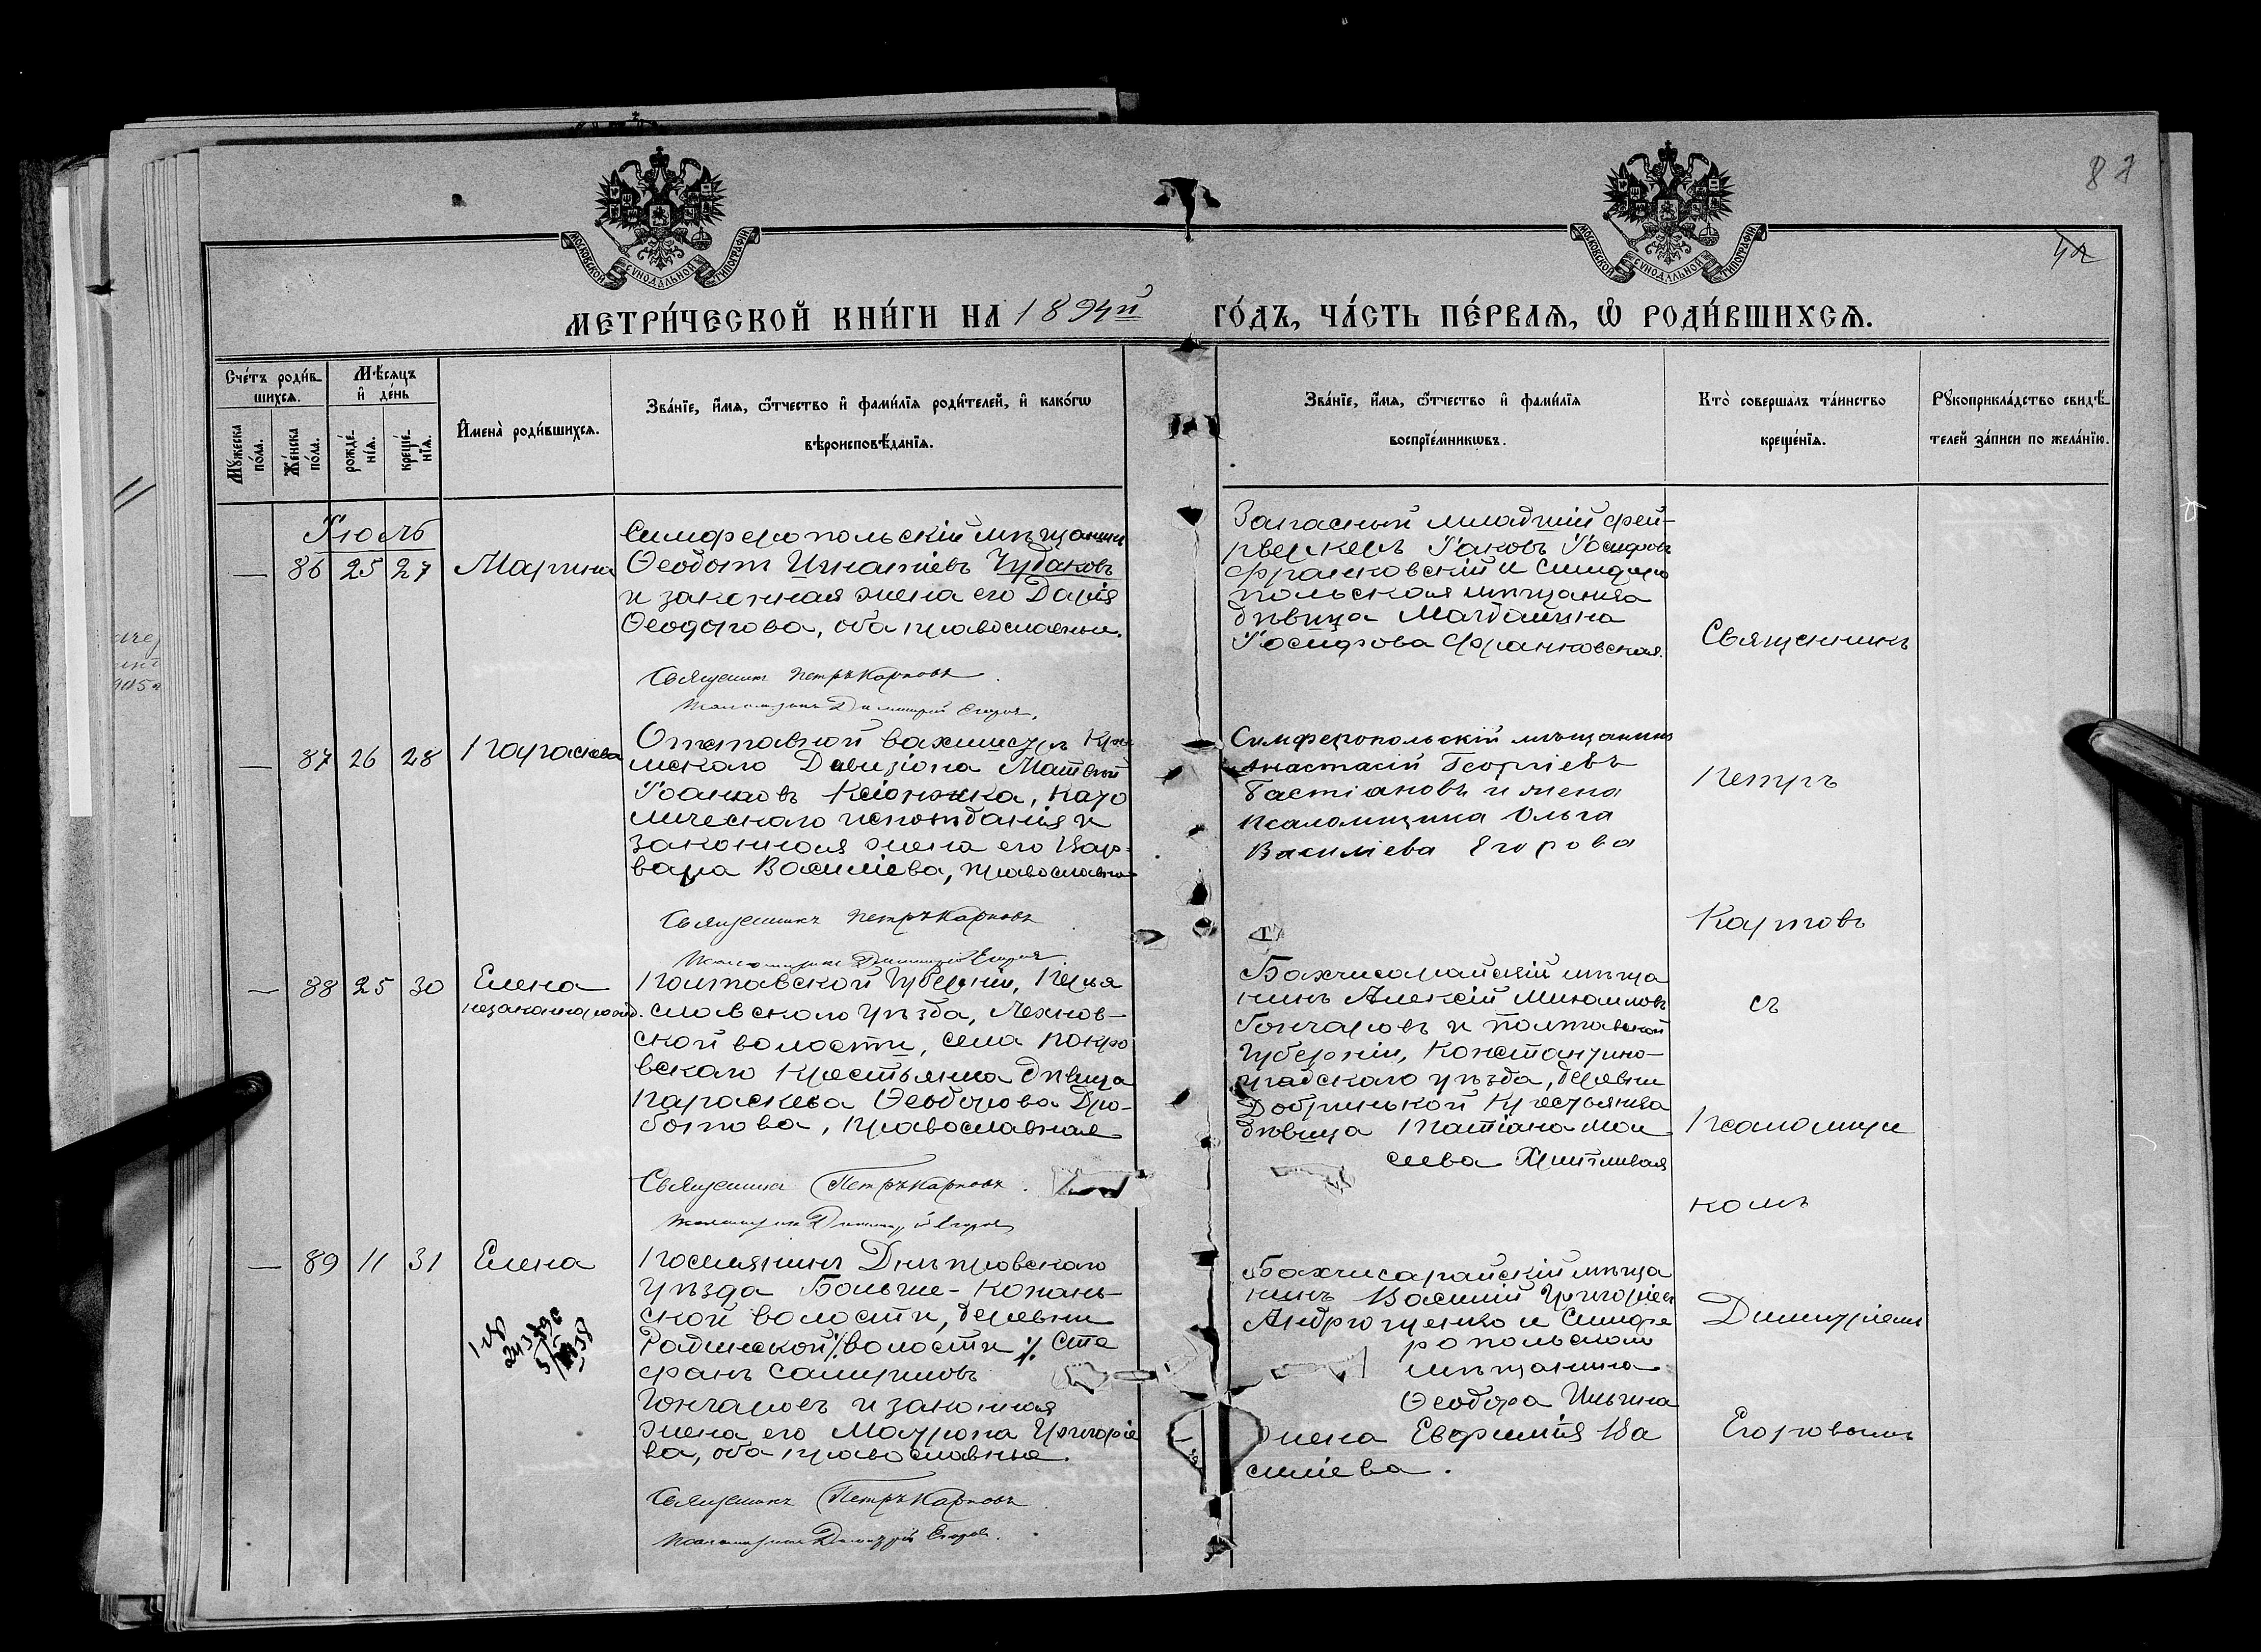 87
42
МОСКОВСКОЙ СѴНОДАЛЬНОЙ ТИПОГРАФІИ
МОСКОВСКОЙ СѴНОДАЛЬНОЙ ТИПОГРАФІИ
МЕТРИ́ЧЕСКОЙ КНИ́ГИ НА 1894й ГО́ДЪ, ЧА́СТЬ ПЕ́РВАѦ, Ѽ РОДИ́ВШИХСѦ.
Сче́тъ роди́в
шихсѧ.
Мѣ́сѧцъ
и҆ де́нь
Мꙋ́жеска
по́ла.
Же́нска
по́ла.
рожде́-
нїѧ.
креще́-
нїѧ.
И҆мена̀ роди́вшихсѧ.
Зва́нїе, и҆́мѧ, ѻ҆́тчество и҆ фами́лїѧ роди́телей, и҆ како́гѡ
вѣроисповѣ́данїѧ.
Зва́нїе, и҆́мѧ, ѻ҆́тчество и҆ фами́лїѧ
воспрїе́мникѡвъ.
Кто̀ соверша́лъ та́инство
креще́нїѧ.
Рꙋкоприкла́дство свидѣ́
телей за́писи по жела́нїю.
Іюль
— 86 25 27 Марина
Симферопольскій мѣщанинъ
Ѳеодотъ Игнатіевъ Чудаковъ
и законная жена его Дарія
Ѳеодорова, оба православные.
Священникъ Петръ Карповъ
Псаломщикъ Димитрій Егоровъ
Запасный младшій фей-
рверкеръ Іаковъ Іосифовъ
Франковскій и Симферо
польская мѣщанка
дѣвица Магдалина
Іосифова Франковская.
Священникъ
— 87 26 28 Параскева
Отставной вахмистръ Кры
мскаго Дивизіона Матвей
Іоанновъ Ксіонжка, като
лическаго исповѣданія и
законная жена его Вар-
вара Василіева, православная
Священникъ Петръ Карповъ
Псаломщикъ Димитрій Егоровъ
Симферопольскій мѣщанинъ
Анастасій Георгіевъ
Бастіановъ и жена
псаломщика Ольга
Василіева Егорова
Петръ
Карповъ
— 88 25 30 Елена
незаконнорожд.
Полтавской губерніи, Перея
славскаго уѣзда,
ской волости, села Покро
вскаго крестьянка дѣвица
Параскева Ѳеодорова Дро-
ботова, православная
Священникъ Петръ Карповъ
Псаломщикъ Димитрій Егоровъ
Бахчисарайскій мѣща
нинъ Алексій Михаиловъ
Гончаровъ и Полтавской
губерніи, Константино-
градскаго уѣзда, деревни
Добринькой крестьянка
дѣвица Татіана Мои
сеева
съ
Псаломщи
комъ
— 89 11 31 Елена
Поселянинъ Днѣпровскаго
уѣзда Больше-Копань-
ской волости, деревни
Радинской ⁒ волости ⁒ Сте
фанъ
Гончаровъ и законная
жена его Матрона Григоріе
ва, оба православные.
Священникъ Петръ Карповъ
Псаломщикъ Димитрій Егоровъ.
Бахчисарайскій мѣща
нинъ Василій Григоріевъ
Андрющенко и Симфе
ропольскаго
мѣщанина
Ѳеодора Ильина
жена Евфимія Ва
силіева.
Димитріемъ
Егоровымъ